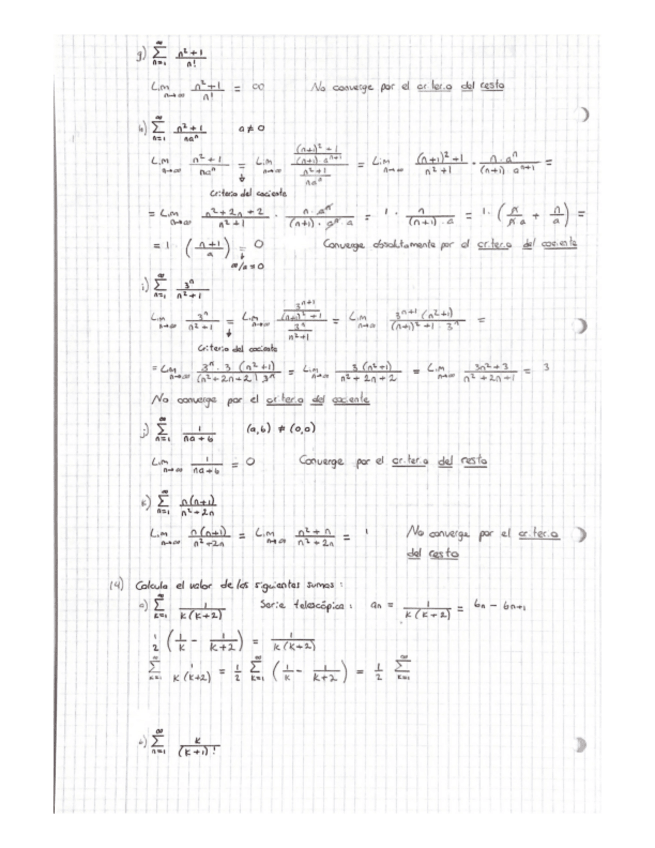 g) ∑_{n=1}^{∞} (n²+1)/n!
Lim_{n→∞} (n²+1)/n! = ∞ No converge por el criterio del resto
h) ∑_{n=1}^{∞} (n²+1)/(na^n) a≠0
Lim_{n→∞} (n²+1)/(na^n) = Lim_{n→∞} (((n+1)²+1)/((n+1)·a^{n+1}))/((n²+1)/(na^n)) = Lim_{n→∞} ((n+1)²+1)/(n²+1) · (n·a^n)/((n+1)·a^{n+1}) =
↓
Criterio del cociente
= Lim_{n→∞} (n²+2n+2)/(n²+1) · (n·a^n)/((n+1)·a^n·a) = 1 · n/((n+1)·a) = 1·(n/(na) + n/a) =
= 1 · ((n+1)/a) = 0 Converge absolutamente por el criterio del cociente
↓
∞/a=0
i) ∑_{n=1}^{∞} 3^n/(n²+1)
Lim_{n→∞} 3^n/(n²+1) = Lim_{n→∞} (3^{n+1}/((n+1)²+1))/(3^n/(n²+1)) = Lim_{n→∞} (3^{n+1}(n²+1))/((n+1)²+1·3^n) =
↓
Criterio del cociente
= Lim_{n→∞} (3^n·3(n²+1))/((n²+2n+2)3^n) = Lim_{n→∞} (3(n²+1))/(n²+2n+2) = Lim_{n→∞} (3n²+3)/(n²+2n+1) = 3
No converge por el criterio del cociente
j) ∑_{n=1}^{∞} 1/(na+b) (a,b) ≠ (0,0)
Lim_{n→∞} 1/(na+b) = 0 Converge por el criterio del resto
k) ∑_{n=1}^{∞} n(n+1)/(n²+2n)
Lim_{n→∞} n(n+1)/(n²+2n) = Lim_{n→∞} (n²+n)/(n²+2n) = 1 No converge por el criterio
del resto
(4) Calcula el valor de las siguientes sumas:
a) ∑_{k=1}^{∞} 1/(k(k+2)) Serie telescópica: an = 1/(k(k+2)) = bn - bn+1
1/2 (1/k - 1/(k+2)) = 1/(k(k+2))
∑_{k=1}^{∞} 1/(k(k+2)) = 1/2 ∑_{k=1}^{∞} (1/k - 1/(k+2)) = 1/2 ∑_{k=1}^{∞}
b) ∑_{n=1}^{∞} k/(k+1)!